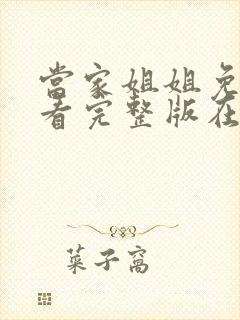 當家姐姐免
看完整版在
菜子窩